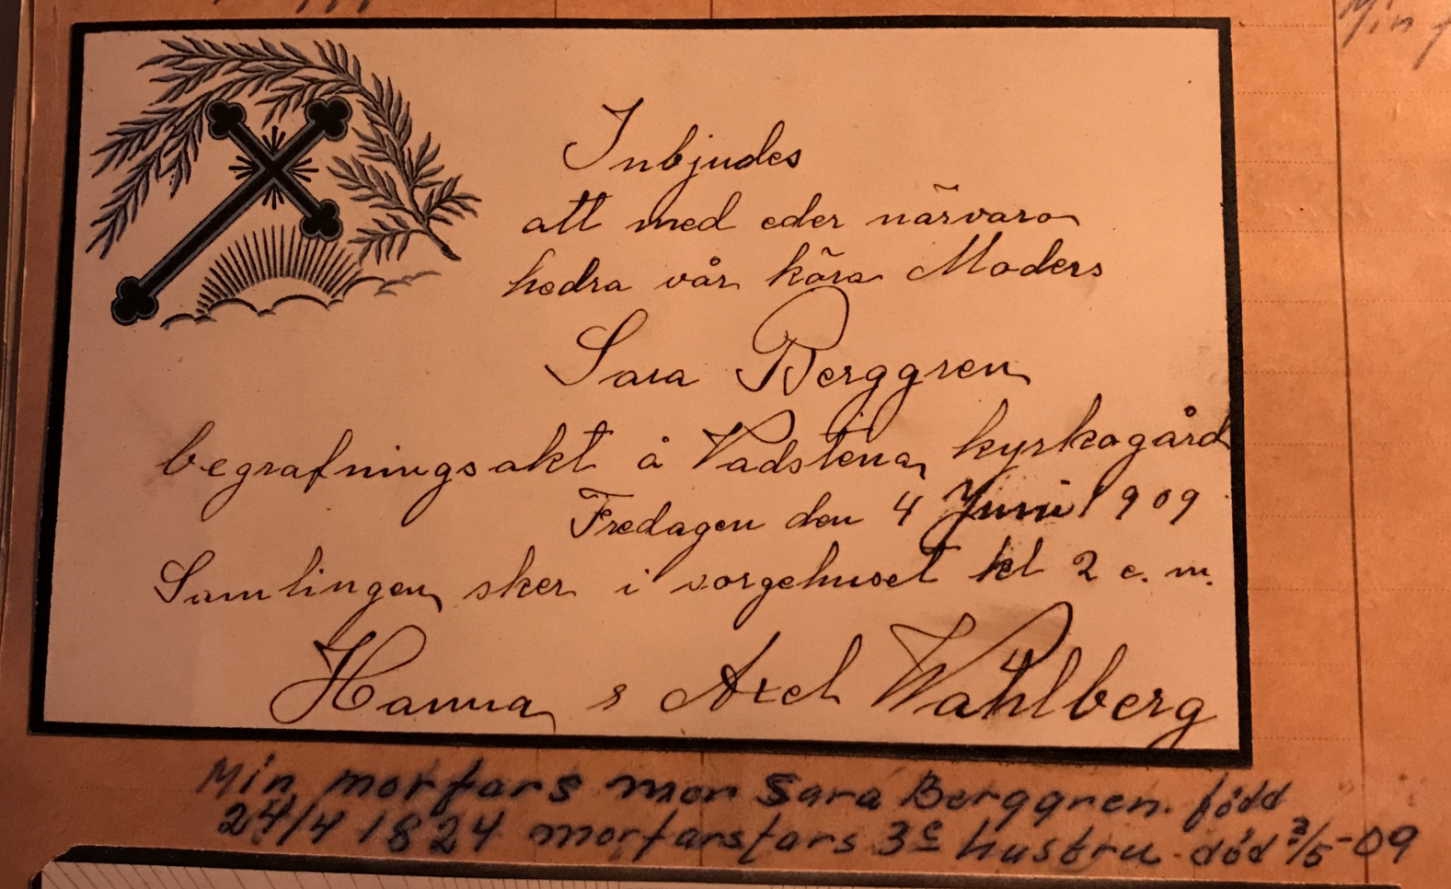 Inbjudes
att med eder närvaro
hedra vår kära Moders
Sara Berggren
begrafningsakt å Vadstena kyrkogård
Fredagen den 4 Juni 1909
Samlingen sker i sorgehuset kl 2 e.m.
Hanna & Axel Wahlberg
Min morfars mor Sara Berggren. född
24/4 1824 morfarsfars 3e hustru. död /5-09